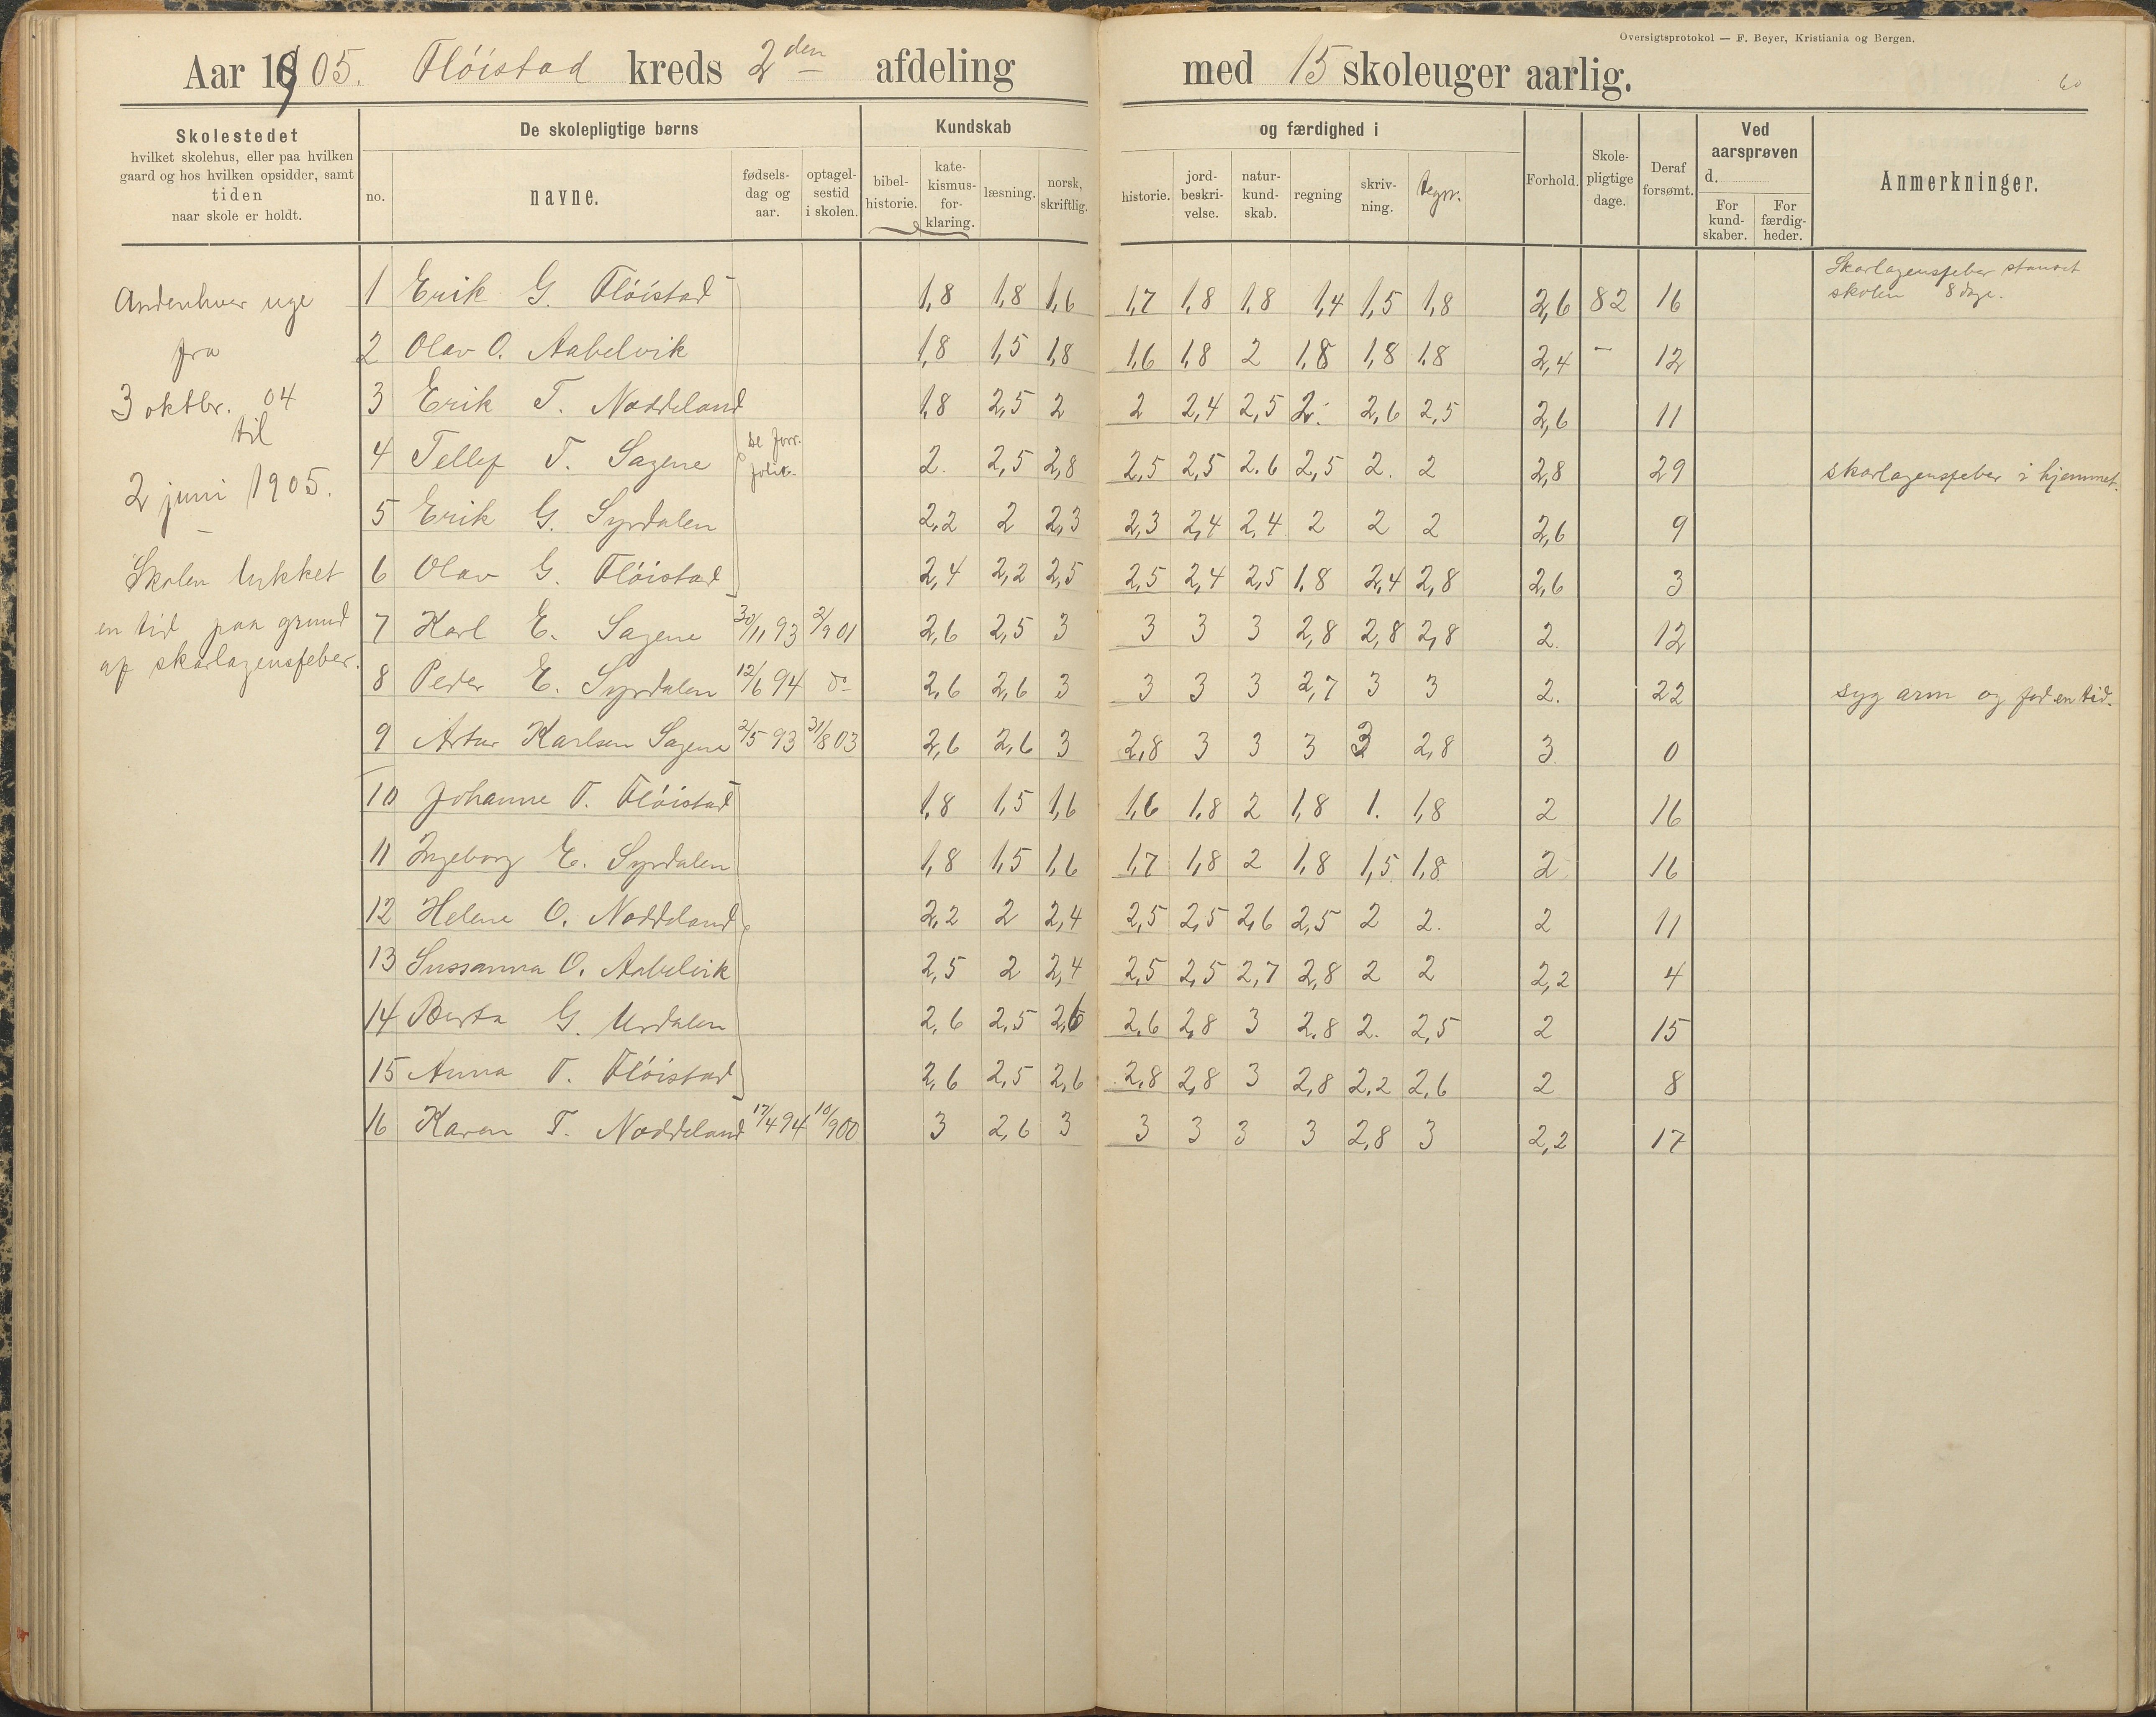 Oversigtsprotokol — F. Beyer, Kristiania og Bergen.
Aar 1905. Flöistad kreds 2den afdeling med 15 skoleuger aarlig.
60
Skolestedet
hvilket skolehus, eller paa hvilken
gaard og hos hvilken opsidder, samt
tiden
naar skole er holdt.
De skolepligtige børns
no.
navne.
fødsels-
dag og
aar.
optagel-
sestid
i skolen.
Kundskab
bibel-
historie.
kate-
kismus-
for-
klaring.
læsning.
norsk,
skriftlig.
og færdighed i
historie.
jord-
beskri-
velse.
natur-
kund-
skab.
regning
skriv-
ning.
tegn.
Forhold.
Skole-
pligtige
dage.
Deraf
forsømt.
Ved
aarsprøven
d.
For
kund-
skaber.
For
færdig-
heder.
Anmerkninger.
Andenhver uge
fra
3 oktbr. 04
til
2 juni 1905.
Skolen lukket
en tid paa grund
af skarlagensfeber.
1 Erik G. Flöistad 1,8 1,8 1,6 1,7 1,8 1,8 1,4 1,5 1,8 2,6 82 16 Skarlagensfeber stanset
skolen 8 dage.
2 Olav O. Aabelvik 1,8 1,5 1,8 1,6 1,8 2 1,8 1,8 1,8 2,4 — 12
3 Erik T. Noddeland 1,8 2,5 2 2 2,4 2,5 2. 2,6 2,5 2,6 11
4 Tellef T. Sagene se forr. 2. 2,5 2,8 2,5 2,5 2.6 2,5 2. 2 2,8 29 skarlagensfeber i hjemmet.
5 Erik G. Syrdalen 2,2 2 2,3 2,3 2,4 2,4 2 2 2 2,6 9
6 Olav G. Flöistad 2,4 2,2 2,5 2,5 2,4 2,5 1,8 2,4 2,8 2,6 3
7 Karl E. Sagene 30/11 93 2/9 01 2,6 2,5 3 3 3 3 2,8 2,8 2,8 2. 12
8 Peder E. Syrdalen 12/6 94 do 2,6 2,6 3 3 3 3 2,7 3 3 2. 22 syg arm og fod en tid.
9 Artur Karlsen Sagene 2/5 93 31/8 03 2,6 2,6 3 2,8 3 3 3 3 2,8 3 0
10 Johanne T. Flöistad 1,8 1,5 1,6 1,6 1,8 2 1,8 1. 1,8 2 16
11 Ingeborg E. Syrdalen 1,8 1,5 1,6 1,7 1,8 2 1,8 1,5 1,8 2 16
12 Helene O. Noddeland 2,2 2 2,4 2,5 2,5 2,6 2,5 2 2. 2 11
13 Sussanna O. Aabelvik 2,5 2 2,4 2,5 2,5 2,7 2,8 2 2 2,2 4
14 Berta G. Urdalen 2,6 2,5 2,6 2,6 2,8 3 2,8 2. 2,5 2 15
15 Anna T. Flöistad 2,6 2,5 2,6 2,8 2,8 3 2,8 2,2 2,6 2 8
16 Karen T. Noddeland 17/4 94 10/9 00 3 2,6 3 3 3 3 3 2,8 3 2,2 17